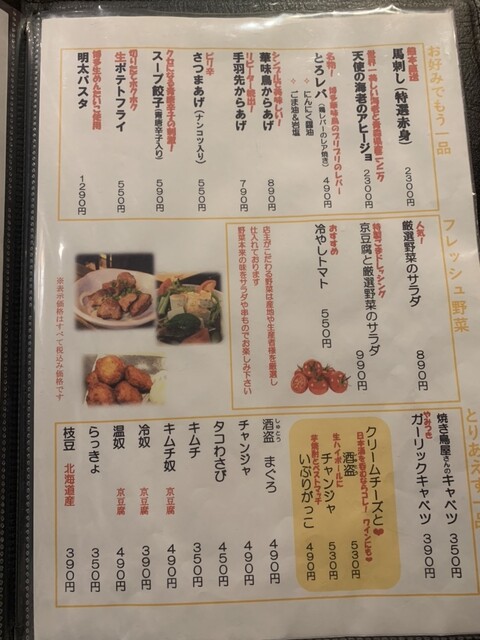 お好みでもう一品
熊本直送
馬刺し(特選赤身) 2300円
天使の海老のアヒージョ 2300円
名物! 博多華味鳥のプリプリのレバー
とろレバ(鶏レバーのレア焼き) 490円
にんにく醤油
ごま油&岩塩
シンプルで美味しい!
華味鳥からあげ 890円
リピーター続出!
手羽先からあげ 790円
ピリ辛
さつまあげ(ナンコツ入り) 550円
クセになる青唐辛子の刺激!
スープ餃子(青唐辛子入り) 590円
切りたてホクホク
生ポテトフライ 550円
博多生めんたいこ使用
明太パスタ 1290円
フレッシュ野菜
人気!
厳選野菜のサラダ 890円
特製ごまドレッシング
京豆腐と厳選野菜のサラダ 990円
おすすめ
冷やしトマト 550円
店主がこだわる野菜は産地や生産者様を厳選し
仕入れております
野菜本来の味をサラダや串ものでお楽しみ下さい
※表示価格はすべて税込み価格です
とりあえず一品
焼き鳥屋さんのキャベツ 350円
やみつき
ガーリックキャベツ 390円
クリームチーズと❤
日本酒を呑むならコレ! ワインにも❤
酒盗 530円
生ハイボールに
チャンジャ 530円
芋焼酎とベストマッチ
いぶりがっこ 490円
しゅとう
酒盗 まぐろ 490円
チャンジャ 490円
タコわさび 450円
キムチ 350円
キムチ奴 京豆腐 490円
冷奴 京豆腐 390円
温奴 京豆腐 490円
らっきょ 350円
枝豆 北海道産 390円